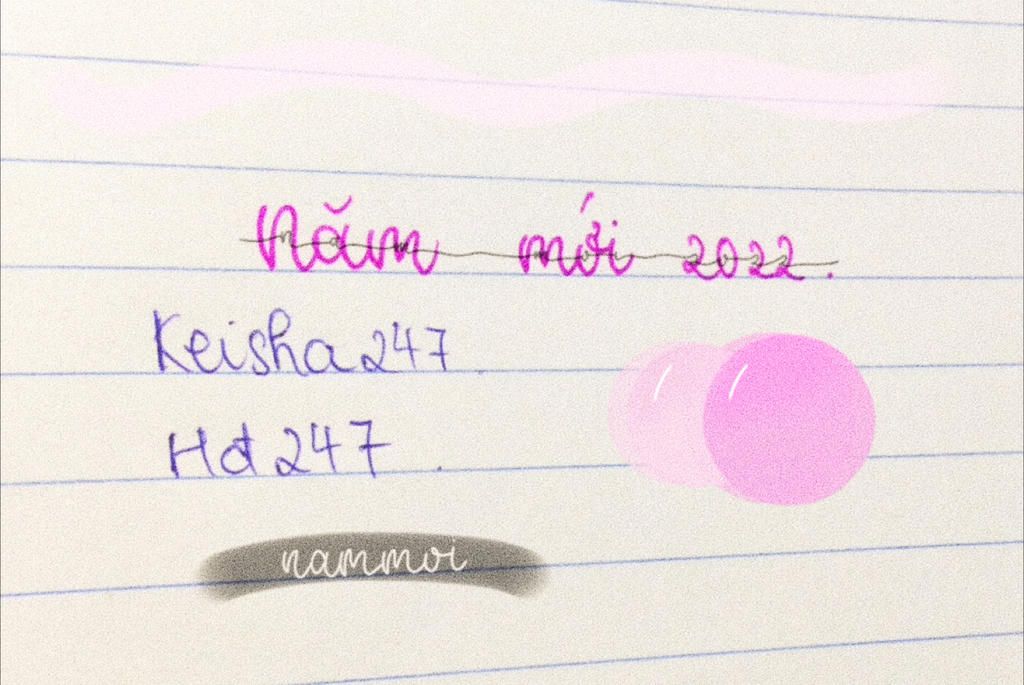 Năm mới 2022.
Keisha247.
Hd247.
nammoi